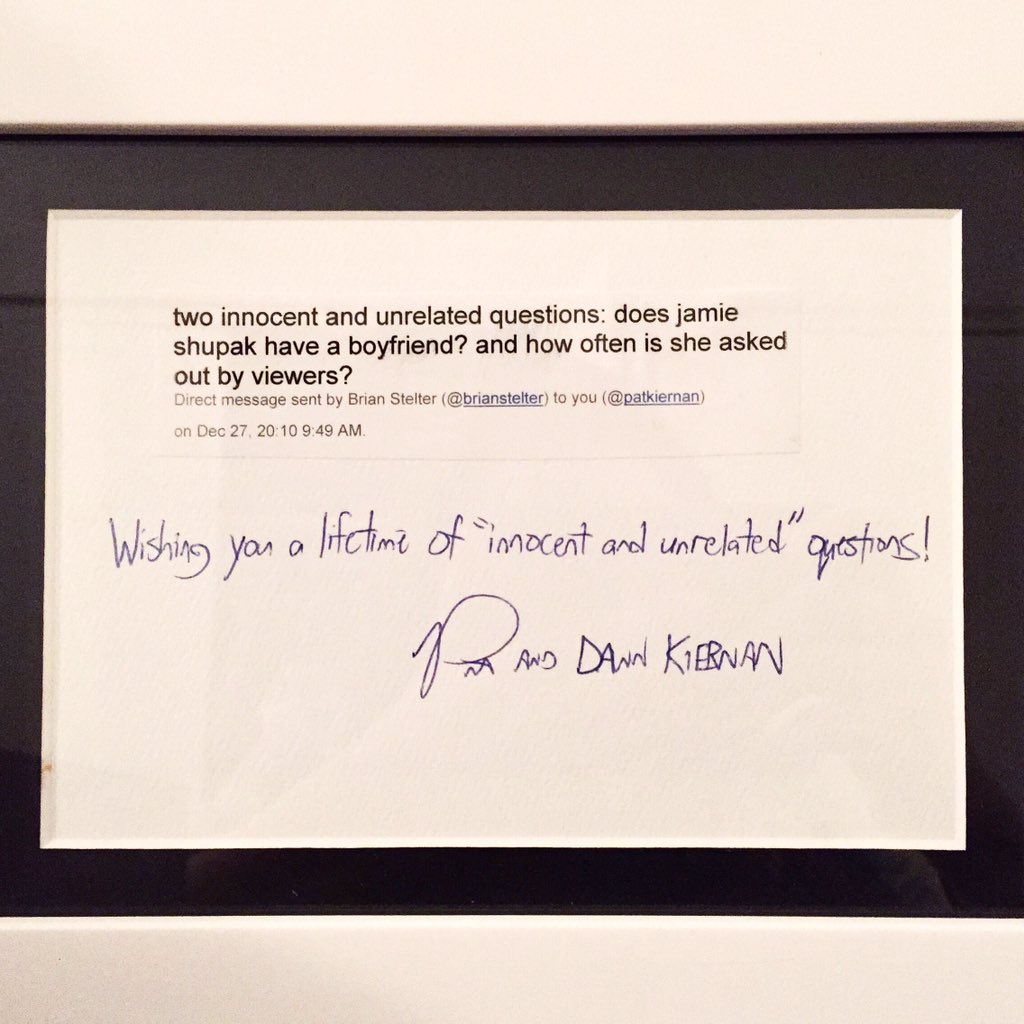 two innocent and unrelated questions: does jamie
shupak have a boyfriend? and how often is she asked
out by viewers?
Direct message sent by Brian Stelter (@brianstelter) to you (@patkiernan)
on Dec 27, 20:10 9:49 AM.
Wishing you a lifetime of "innocent and unrelated" questions!
Pat AND DAWN KIERNAN